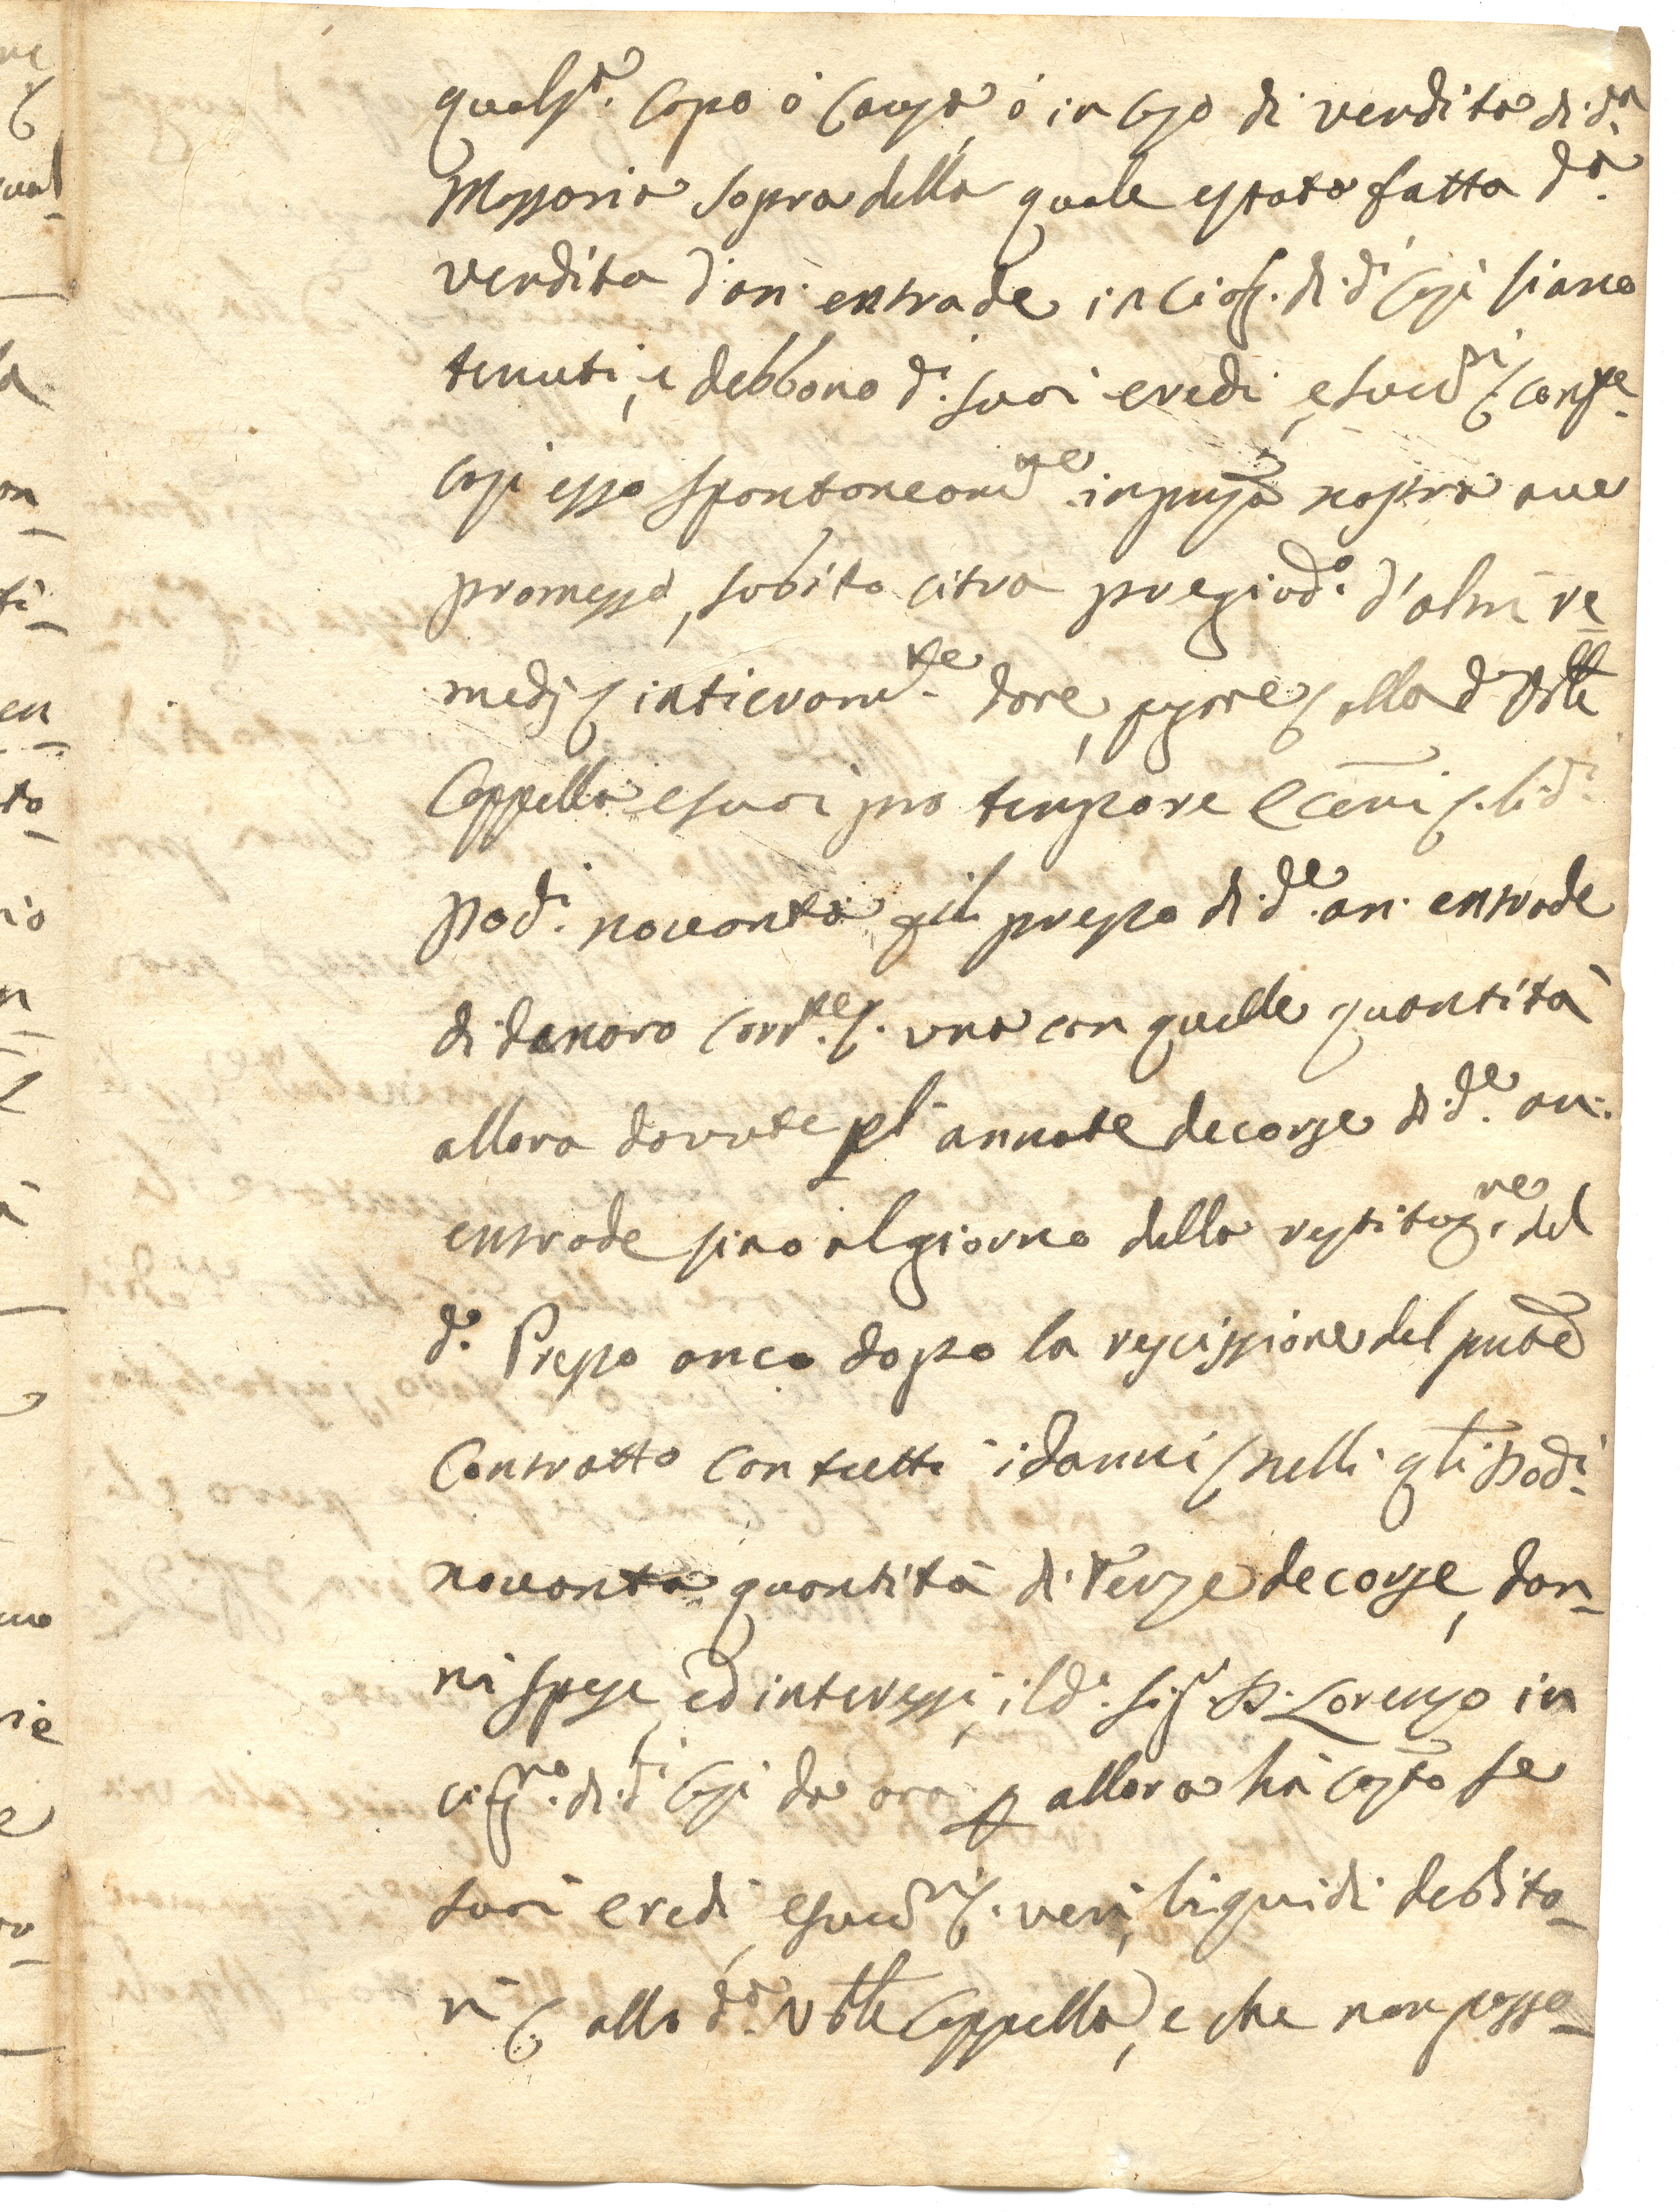 quals.ª caso ò causa, ò in caso di vendita di d.ª
Massaria sopra della quale è stata fatta d.ª
vendita d'an. entrade in ciasc. di d.i casi siano
tenuti, e debbono d.i suoi eredi, e succ.ri
casi esso spontaneam.te in pnza nostra ave
promesso, subito citra pregiud.o d'altri re
medj intieram.te dare, pagare alla d.
Cappella e suoi pro tempore
Dod.i novanta prezzo di d.e an. entrade
di denaro corr.te una con quelle quantità
allora dovute pl' annate decorse di d.e an.
entrade sino al giorno della restituz.ne del
d.o Prezzo anco dopo la rescissione del pnte
Contratto con tutti i danni nelli qli Dod.i
novanta quantità di Terze decorse, dan-
ni spese, ed interessi, il d.o Sig.r D. Lorenzo in
ciasc.no di d.i casi da ora p allora hà cost.o se
suoi eredi, e succ.ri veri, liquidi debito-
ri alla d.ª Cappella, e che non possa-